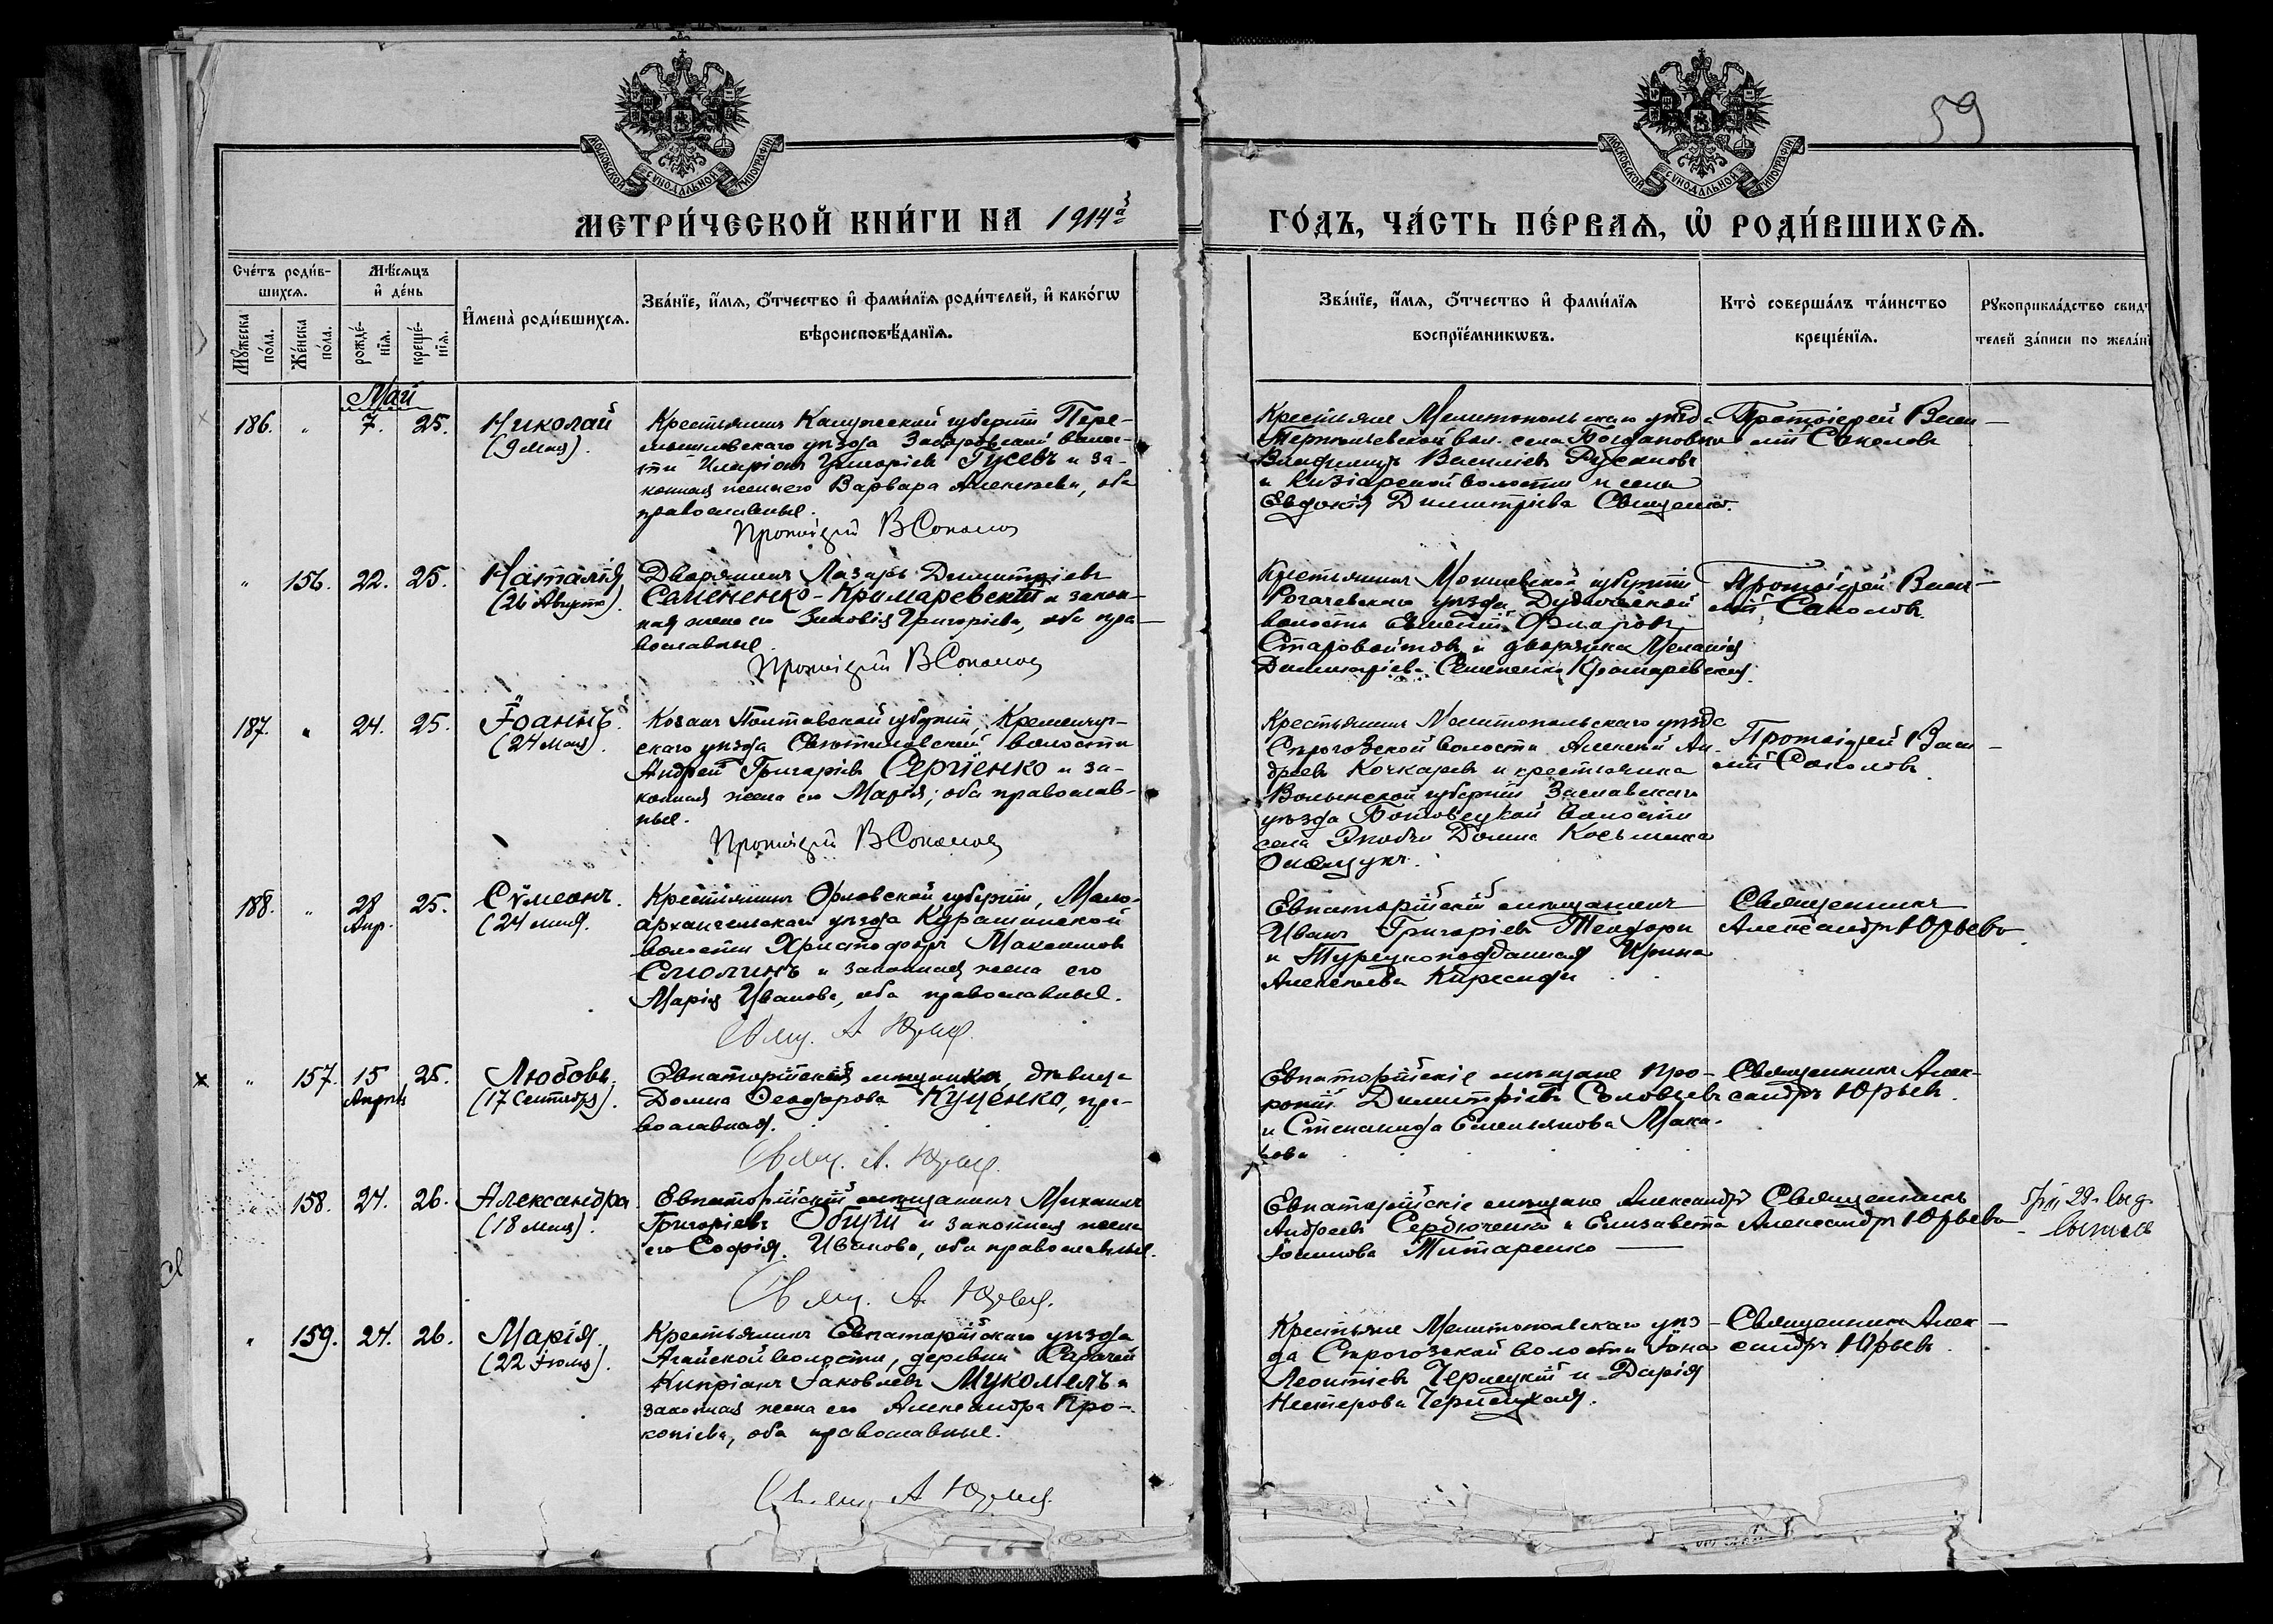 59
МОСКОВСКОЙ СѴНОДАЛЬНОЙ ТИПОГРАФІИ
МОСКОВСКОЙ СѴНОДАЛЬНОЙ ТИПОГРАФІИ
МЕТРИ́ЧЕСКОЙ КНИ́ГИ НА 1914й
ГО́ДЪ, ЧА́СТЬ ПЕ́РВАѦ, Ѡ҆ РОДИ́ВШИХСѦ.
Сче́тъ роди́в-
шихсѧ.
Мѣ́сѧцъ
и҆ де́нь
И҆мена̀ роди́вшихсѧ.
Зва́нїе, и҆́мѧ, ѻ҆́тчество и҆ фами́лїѧ роди́телей, и҆ како́гѡ
вѣроисповѣ́данїѧ.
Мꙋ́жеска
по́ла.
Же́нска
по́ла.
рожде́-
нїѧ.
креще́-
нїѧ.
Зва́нїе, и҆́мѧ, ѻ҆́тчество и҆ фами́лїѧ
воспрїе́мникѡвъ.
Кто̀ соверша́лъ та́инство
креще́нїѧ.
Рꙋкоприкла́дство свид
телей за́писи по жела́н
Май
186. " 7. 25. Николай
(9 мая).
Крестьянинъ Калужской губерніи Пере-
мышльскаго уѣзда волос-
ти Иларіонъ Григоріевъ Гусевъ и за-
конная жена его Варвара Алексѣева, оба
православные.
Протоіерей В Соколов
Крестьяне Мелитопольскаго уѣзда
вол. села Богдановки
Владимиръ Василіевъ Русановъ
и волости и села
Евдокія Димитріева
Протоіерей Васи-
лій Соколовъ
" 156. 22. 25. Наталія
(26 Августа).
Дворянинъ Лазарь Димитріевъ
Семененко-Крамаревскій и закон-
ная жена его Зиновія Григоріева, оба пра-
вославные.
Протоіерей В Соколов
Крестьянинъ Могилевской губерніи
Рогачевскаго уѣзда Дудичской
волости
Старовойтовъ и дворянка Меланія
Димитріева Семененко Крамаревская.
Протоіерей Васи-
лій Соколовъ.
187. " 24. 25. Іоаннъ.
(24 мая).
Козакъ Полтавской губерніи, Кременчуг-
скаго уѣзда волости
Андрей Григоріевъ Сергіенко и за-
конная жена его Марія; оба православ-
ные.
Протоіерей В Соколов
Крестьянинъ Мелитопольскаго уѣзда
Строгозской волости Алексѣй Ан-
дреевъ Кочкаревъ и крестьянка
Волынской губерніи Заславскаго
уѣзда волости
села Домна Косьмина
Протоіерей Васи-
лій Соколовъ.
188. " 28
Апр. 25. Сѵмеонъ.
(24 мая).
Крестьянинъ Орловской губерніи, Мало-
архангельскаго уѣзда Куракинской
волости Христофоръ Максимовъ
Смолинъ и законная жена его
Марія Иванова, оба православные.
Свящ. А Юрьев.
Евпаторійскій мѣщанинъ
Иванъ Григоріевъ Теодори
и Турецкоподданная Ирина
Алексѣева
Священникъ
Александръ Юрьевъ
" 157. 15
Апрѣля 25. Любовь.
(17 Сентября).
Евпаторійская мѣщанка, дѣвица
Домна Ѳеодорова Куценко, пра-
вославная.
Свящ. А. Юрьев.
Евпаторійскіе мѣщане Про-
копій Димитріевъ Соловьевъ
и Степанида Емельянова Мака-
рова
Священникъ Алек-
сандръ Юрьевъ.
158. 24. 26. Александра
(18 мая).
Евпаторійскій мѣщанинъ Михаилъ
Григоріевъ и законная жена
его Софія Иванова, оба православные.
Свящ. А. Юрьев.
Евпаторійскіе мѣщане Александръ
Андреевъ Сердюченко и Елизавета
Титаренко
Священникъ
Александръ Юрьевъ
" 159. 24. 26. Марія.
(22 Іюля).
Крестьянинъ Евпаторійскаго уѣзда
Агайской волости, деревни
Кипріанъ Іаковлевъ Мукомелъ и
законная жена его Александра Про-
копіева, оба православные.
Свящ. А Юрьев.
Крестьяне Мелитопольскаго уѣз-
да Строгозской волости Іона
Леонтіевъ Чернецкій и Дарія
Нестерова Чернецкая.
Священникъ Алек-
сандръ Юрьевъ.